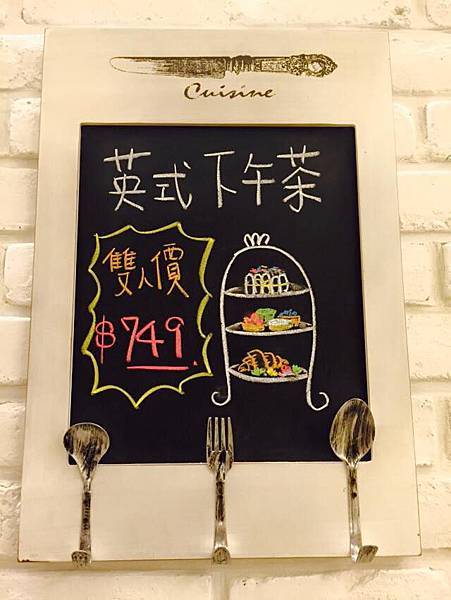 Cuisine
英式下午茶
雙人價
$749.